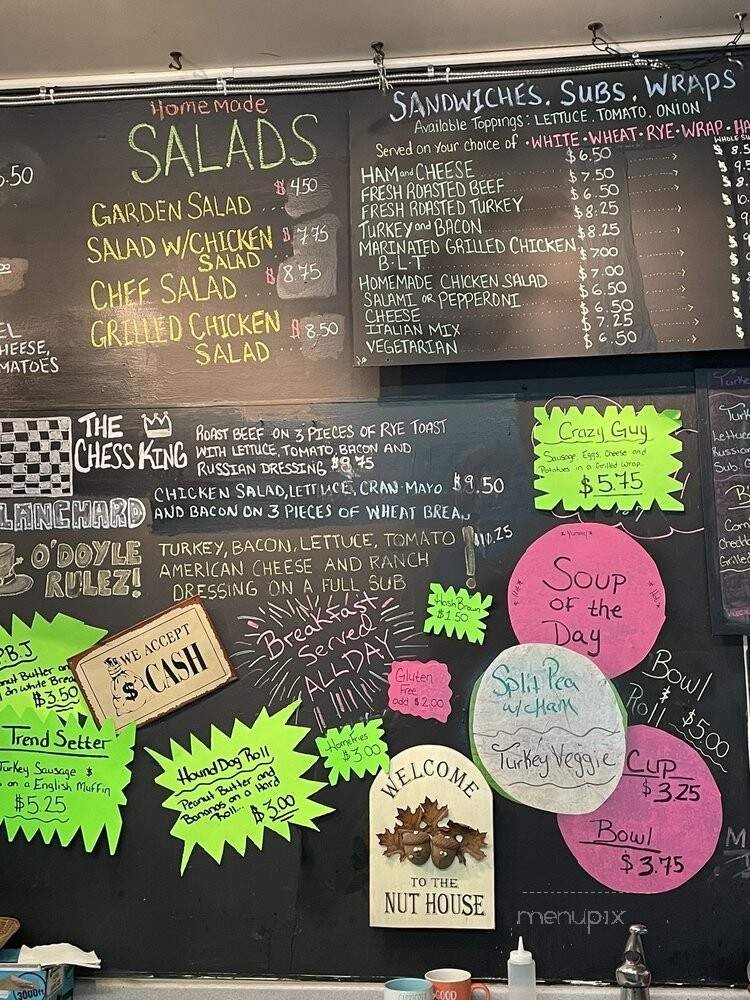 Homemade
SALADS
GARDEN SALAD ... $4.50
SALAD W/CHICKEN $7.75
SALAD
CHEF SALAD .... $8.75
GRILLED CHICKEN $8.50
SALAD ...
SANDWICHES. SUBS. WRAPS
Available Toppings: LETTUCE. TOMATO. ONION
Served on your choice of •WHITE•WHEAT•RYE•WRAP•HA
WHOLE SU
HAM and CHEESE $6.50
FRESH ROASTED BEEF $7.50
FRESH ROASTED TURKEY $6.50
TURKEY and BACON $8.25
MARINATED GRILLED CHICKEN $8.25
B•L•T $7.00
HOMEMADE CHICKEN SALAD $7.00
SALAMI OR PEPPERONI $6.50
CHEESE $6.50
ITALIAN MIX $7.25
VEGETARIAN $6.50
5.50
EL
HEESE,
MATOES
THE
CHESS KING
ROAST BEEF ON 3 PIECES OF RYE TOAST
WITH LETTUCE, TOMATO, BACON AND
RUSSIAN DRESSING $8.75
LANCHARD
CHICKEN SALAD, LETTUCE, CRAN-MAYO $9.50
AND BACON ON 3 PIECES OF WHEAT BREA
O'DOYLE
RULEZ!
TURKEY, BACON, LETTUCE, TOMATO $10.25
AMERICAN CHEESE AND RANCH
DRESSING ON A FULL SUB
Crazy Guy
Sausage, Eggs, Cheese and
Potatoes in a Grilled wrap.
$5.75
Breakfast
Served
ALL DAY
Hash Brown
$1.50
Gluten
Free
add $2.00
Homefries
$3.00
PBJ
nut Butter an
on White Brea
$3.50
WE ACCEPT
$ CASH
Trend Setter
Turkey Sausage $
on a English Muffin
$5.25
Hound Dog Roll
Peanut Butter and
Bananas on a Hard
Roll... $3.00
WELCOME
TO THE
NUT HOUSE
* Yummy! *
Soup
of the
Day
Split Pea
w/Ham
Turkey Veggie
Bowl
&
Roll - $5.00
Cup
$3.25
Bowl
$3.75
menupix